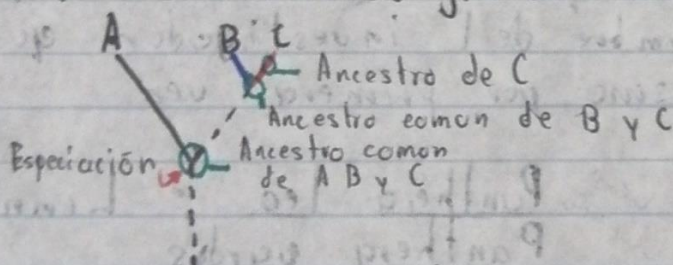 A B C
Ancestro de C
Ancestro comon de B y C
Especiación
Ancestro comon
de A B y C